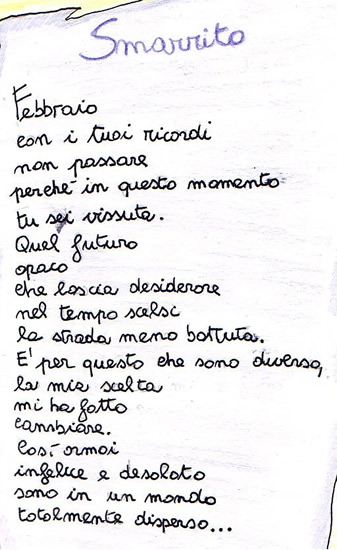 Smarrito
Febbraio
con i tuoi ricordi
non passare
perché in questo momento
tu sei vissuta.
Quel futuro
opaco
che lascia desiderare
nel tempo scelsi
la strada meno battuta.
E' per questo che sono diverso,
la mia scelta
mi ha fatto
cambiare.
Così ormai
infelice e desolato
sono in un mondo
totalmente disperso...